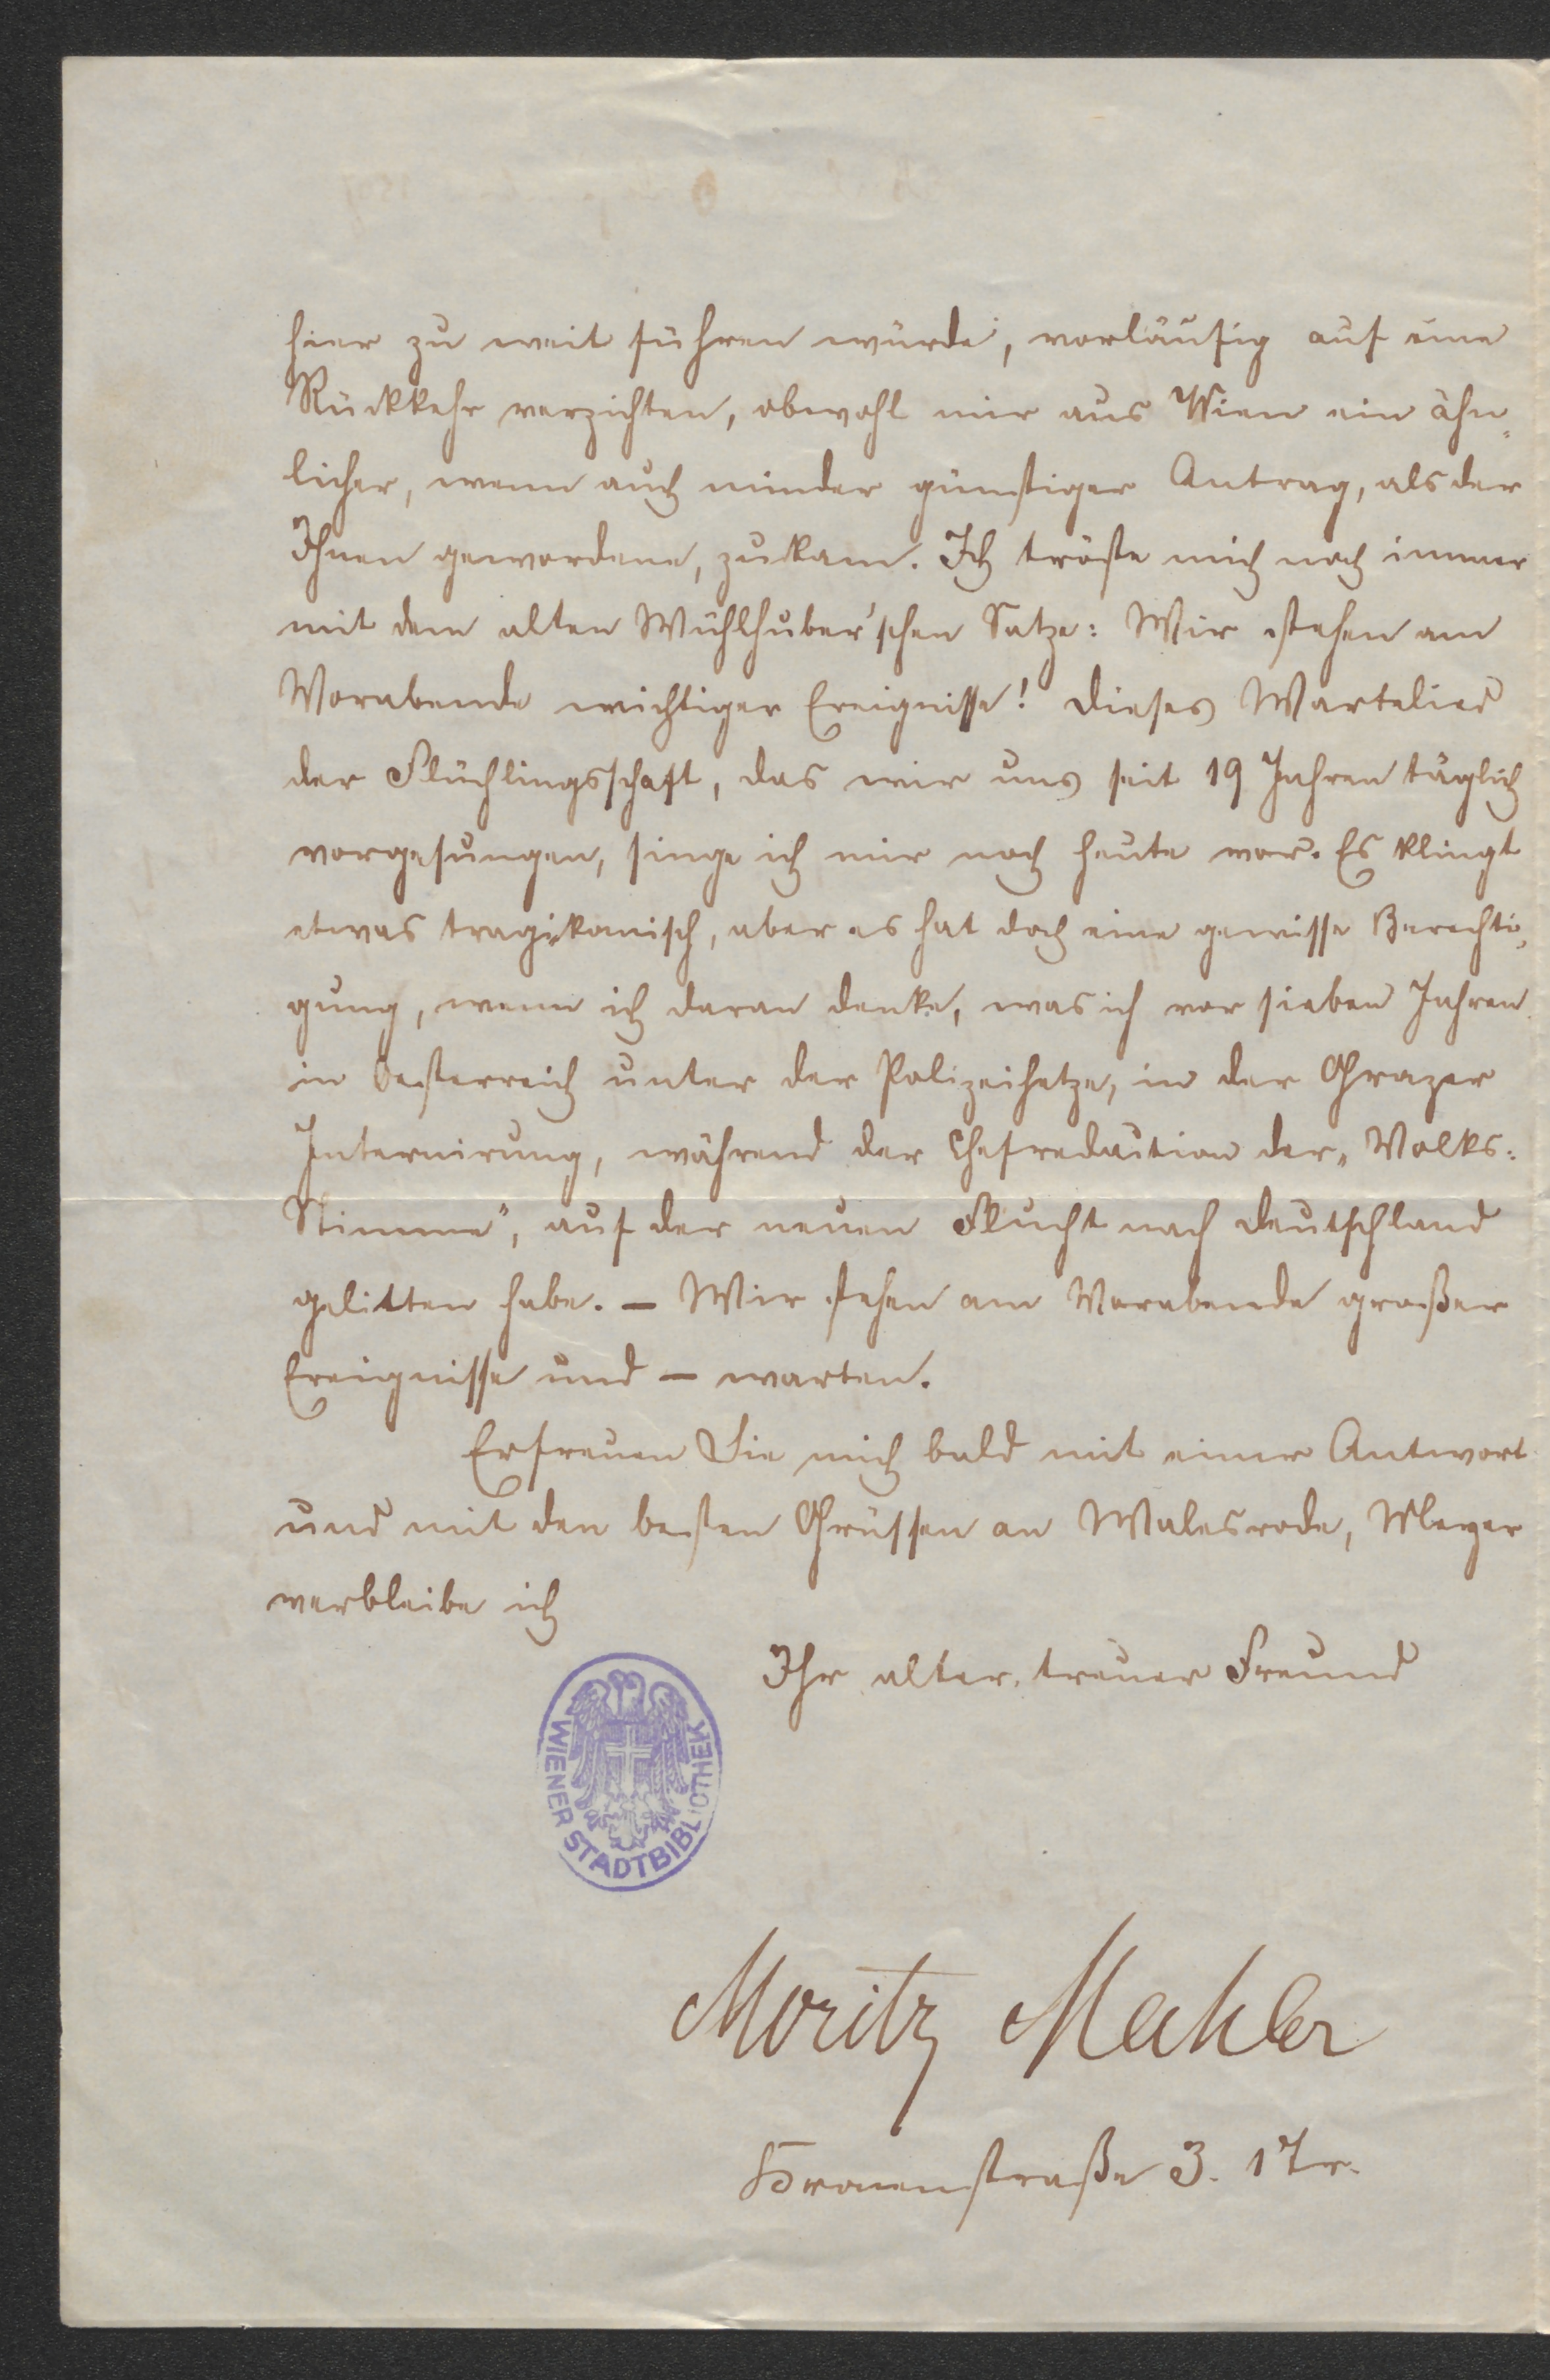 hier zu weit führen würde, vorläufig auf eine
Rückkehr verzichten, obwohl mir aus Wien ein ähn-
licher, wenn auch minder günstiger Antrag, als der
Ihnen gewordene, zukam. Ich tröste mich noch immer
mit dem alten Wühlhuber'schen Satze: Wir stehen am
Vorabende wichtiger Ereignisse! Dieses Wartelied
der Flüchlingsschaft, das wir uns seit 19 Jahren täglich
vorgesungen, singe ich mir noch heute vor. Es klingt
etwas tragikomisch, aber es hat doch eine gewisse Berechti-
gung, wenn ich daran denke, was ich vor sieben Jahren
in Oesterreich unter der Polizeihetze, in der Grazer
Internirung, während der Chefredaction der „Volks-
Stimme", auf der neuen Flucht nach Deutschland
gelitten habe. – Wir stehen am Vorabende großer
Ereignisse und – warten.
Erfreuen Sie mich bald mit einer Antwort
und mit den besten Grüssen an Walesrode, Mayer
verbleibe ich
Ihr alter, treuer Freund
WIENER STADTBIBLIOTHEK
Moritz Mahler
Kronenstraße 3. 1 Tr.